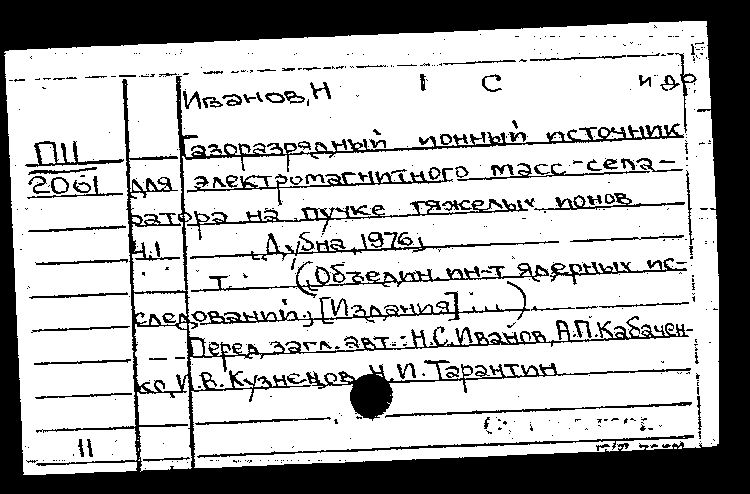 Иванов, Н С и др
П11 Газоразрядный ионный источник
2061 для электромагнитного масс-сепа-
ратора на пучке тяжелых ионов
Ч.1 Дубна, 1976,
т. (Объедин. ин-т ядерных ис-
следований; [Издания] ...).
Перед загл. авт.: Н.С. Иванов, А.П. Кабачен-
ко, И.В. Кузнецов, Н.И. Тарантин
11